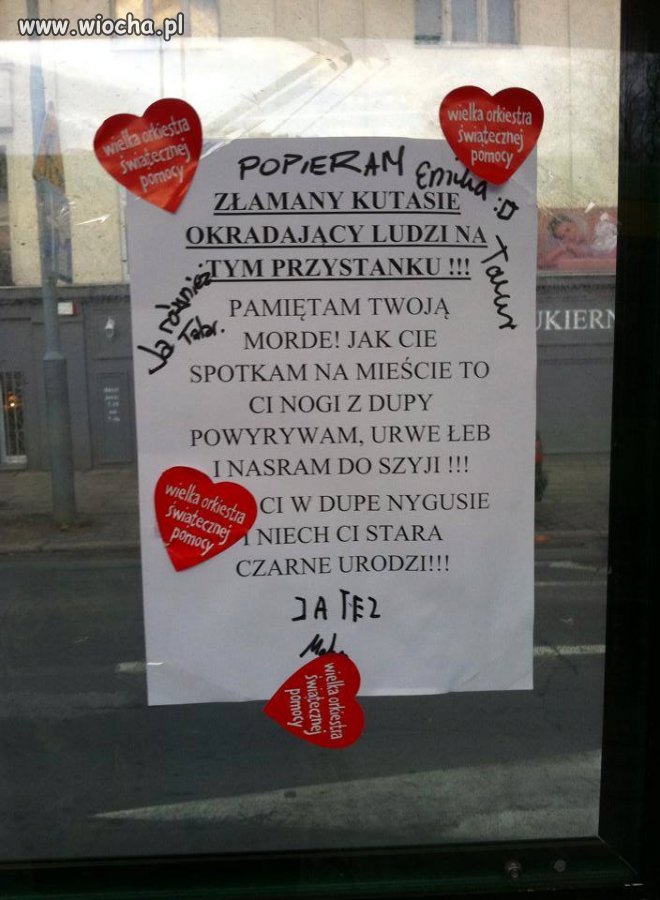 www.wiocha.pl
wielka orkiestra
świątecznej
pomocy
wielka orkiestra
świątecznej
pomocy
POPIERAM
Emilka :D
ZŁAMANY KUTASIE
OKRADAJĄCY LUDZI NA
TYM PRZYSTANKU !!!
Ja również
PAMIĘTAM TWOJĄ
MORDE! JAK CIE
SPOTKAM NA MIEŚCIE TO
CI NOGI Z DUPY
POWYRYWAM, URWE ŁEB
I NASRAM DO SZYJI !!!
UKIERN
wielka orkiestra
świątecznej
pomocy
CI W DUPE NYGUSIE
I NIECH CI STARA
CZARNE URODZI!!!
JA TEZ
wielka orkiestra
świątecznej
pomocy